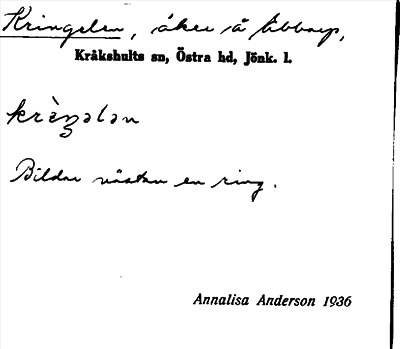 Kringelen, åker å Ubbarp,
Kråkshults sn, Östra hd, Jönk. l.
krìŋələn
Bildar nästan en ring.
Annalisa Anderson 1936